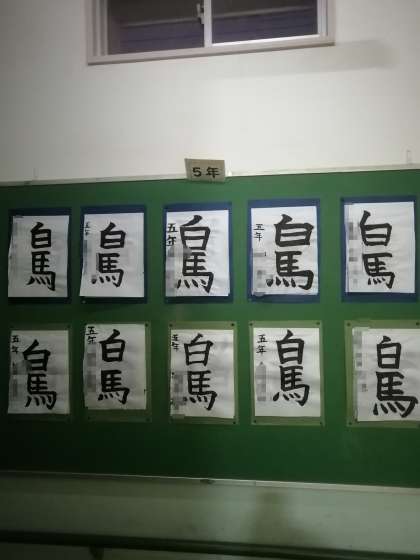 5年
白馬
五年
白馬
五年
白馬
五年
白馬
白馬
五年
白馬
五年
白馬
五年
白馬
五年
白馬
白馬